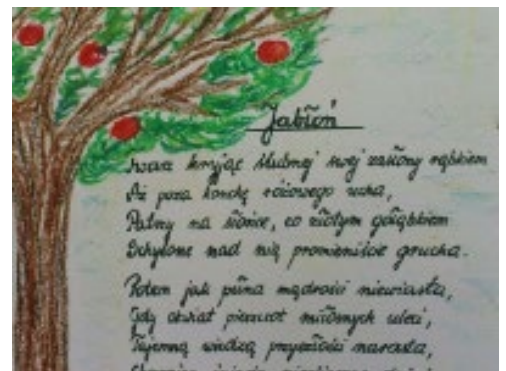 Jabłoń
twarz kryjąc ślubnej swej zasłony rąbkiem
Aż poza konchę różowego ucha,
Patrzy na słońce, co złotym gołąbkiem
Schylone nad nią promieniście grucha.
Potem jak pełna mądrości niewiasta,
Gdy okwiat pieszczot miłosnych uleci,
Tajemną wiedzą przyszłości narasta,